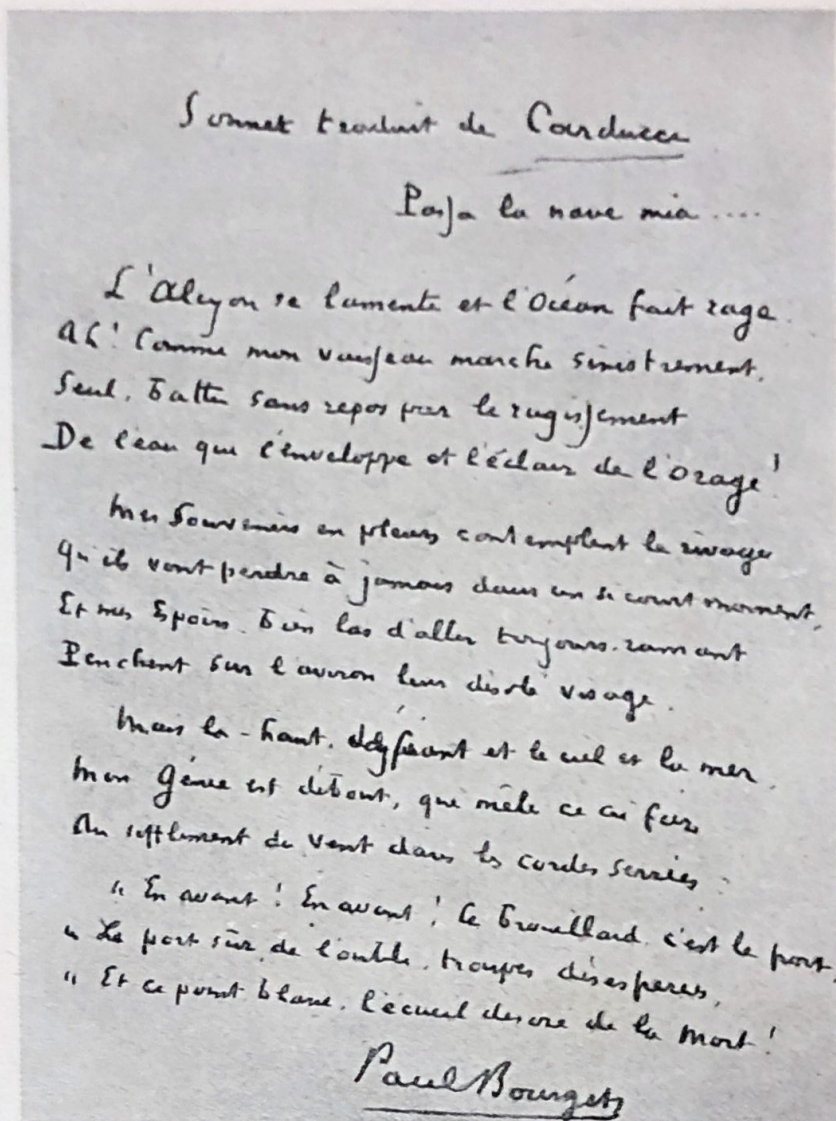 Sonnet traduit de Carducci
Passa la nave mia ....
L'Alcyon se lamente et l'Océan fait rage.
Ah! Comme mon vaisseau marche sinistrement,
Seul, battu sans repos par le rugissement
De l'eau qui l'enveloppe et l'éclair de l'Orage!
Mes Souvenirs en pleurs contemplent le rivage
Qu'ils vont perdre à jamais dans un si court moment,
Et mes Espoirs, bien las d'aller toujours ramant
Penchent sur l'aviron leur désolé visage.
Mais là-haut, défiant et le ciel et la mer,
Mon Génie est debout, qui mêle ce cri fier
Au sifflement du vent dans les cordes serrées :
" En avant! En avant! Ce brouillard, c'est le port,
" Le port sûr de l'oubli, troupes désespérées,
" Et ce point blanc, l'écueil de la Mort!
Paul Bourget